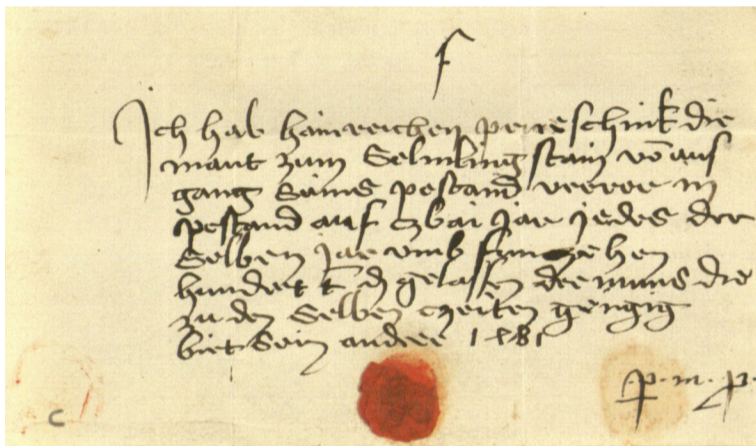 f
Ich hab hainreichen prueschink die
maut zum Selmling stain võ aus
gang Seins pestand verrer in
pestand auf zbai jar jedes der
Selben jar vmb funczehen
hundert t d gelassen der muns die
zu den Selben czeiten gengig
Sein 1481
p. m. p.
c